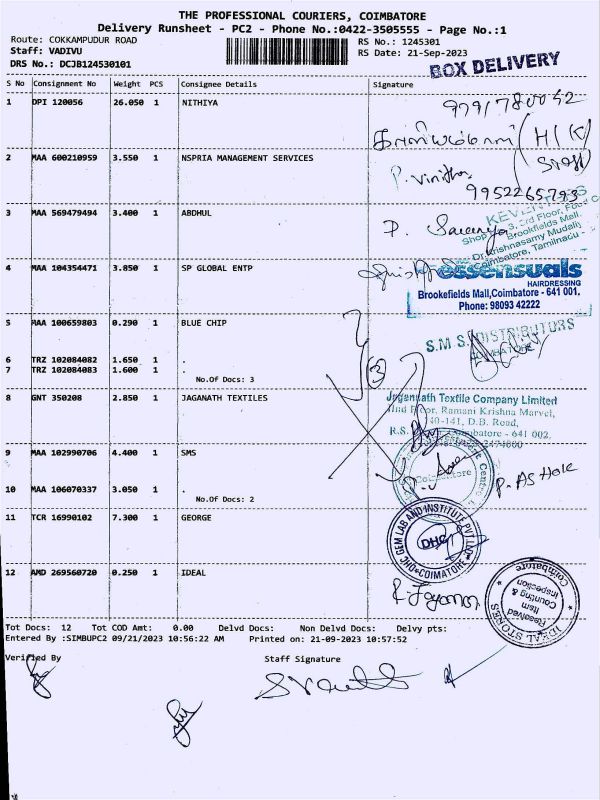 THE PROFESSIONAL COURIERS, COIMBATORE
Delivery Runsheet - PC2 - Phone No.:0422-3505555 - Page No.:1
Route: COKKAMPUDUR ROAD RS No.: 1245301
Staff: VADIVU RS Date: 21-Sep-2023
DRS No.: DCJB124530101 BOX DELIVERY
S No Consignment No Weight PCS Consignee Details Signature
1 DPI 120056 26.050 1 NITHIYA 9791780042
H/K
Staff
2 MAA 600210959 3.550 1 NSPRIA MANAGEMENT SERVICES
P. Vinitha
9952265793
3 MAA 569479494 3.400 1 ABDHUL
P. Saranya
Shop 3, 3rd Floor, Food C
Brookfields Mall,
Dr.Krishnasamy Mudaliy
Coimbatore, Tamilnadu -
4 MAA 104354471 3.850 1 SP GLOBAL ENTP
essensuals
HAIRDRESSING
Brookefields Mall,Coimbatore - 641 001.
Phone: 98093 42222
5 MAA 100659803 0.290 1 BLUE CHIP
S.M.S. DISTRIBUTORS
6 TRZ 102084082 1.650 1 .
7 TRZ 102084083 1.600 1 .
No.Of Docs: 3
3
8 GNT 350208 2.850 1 JAGANATH TEXTILES
Jagannath Textile Company Limited
IInd Floor, Ramani Krishna Marvel,
140-141, D.B. Road,
R.S. Coimbatore - 641 002.
9 MAA 102990706 4.400 1 SMS
Coimbatore
10 MAA 106070337 3.050 1 .
No.Of Docs: 2
P. AShok
11 TCR 16990102 7.300 1 GEORGE
GEM LAB AND INSTITUTE PVT.LTD
DHC
DHC COIMATORE
12 AMD 269560720 0.250 1 IDEAL
IDEAL STORES
Received
Item
Counting &
Inspection
Coimbatore
Tot Docs: 12 Tot COD Amt: 0.00 Delvd Docs: Non Delvd Docs: Delvy pts:
Entered By :SIMBUPC2 09/21/2023 10:56:22 AM Printed on: 21-09-2023 10:57:52
Verified By Staff Signature